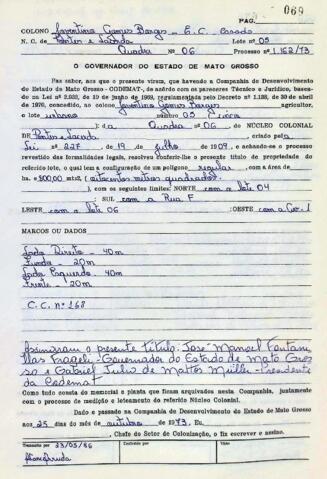 PAG. 069
COLONO Laventino Gomes Borges - E.C. Casado
N. C. de Pontes e Lacerda Lote nº 05
Quadra nº 06 Processo nº 1.162/73
O GOVERNADOR DO ESTADO DE MATO GROSSO
Faz saber, aos que o presente virem, que havendo a Companhia de Desenvolvimento
do Estado de Mato Grosso - CODEMAT, de acôrdo com os pareceres Técnico e Jurídico, basea-
do na Lei nº 2.922, de 19 de junho de 1969, regulamentada pelo Decreto nº 1.138, de 30 de abril
de 1970, concedido, ao colono Laventino Gomes Borges agricultor,
o lote urbano número 05
da Quadra nº 06 NÚCLEO COLONIAL
DE Pontes e Lacerda criado pela
Lei nº 227, de 19 de julho de 1909, e achando-se o processo
revestido das formalidades legais, resolveu conferir-lhe o presente título de propriedade do
referido lote, o qual tem a configuração de um polígono regular, com a área de
ha 800,00 mts2, (oitocentos metros quadrados).
com os seguintes limites: NORTE com o lote 04
SUL com a Rua F
LESTE com o lote 06 OESTE com a
MARCOS OU DADOS
Lado Direito 40m
Fundo - 20m
Lado Esquerdo - 40m
Frente - 20m
C.C. nº 168
Assinaram o presente título: José Manoel Fontani-
llas Fragelli - Governador do Estado de Mato Gros-
so e Gabriel Julio de Mattos Müller - Presidente
da Codemat
Como tudo consta do memorial e planta que ficam arquivados nesta Companhia, juntamente
com o processo de medição e loteamento do referido Núcleo Colonial.
Dado e passado na Companhia de Desenvolvimento do Estado de Mato Grosso
aos 25 dias do mês de outubro de 1973. Eu,
, Chefe do Setor de Colonização, o fiz escrever e assino.
Transcrito por 23/05/86 Conferido por Visto